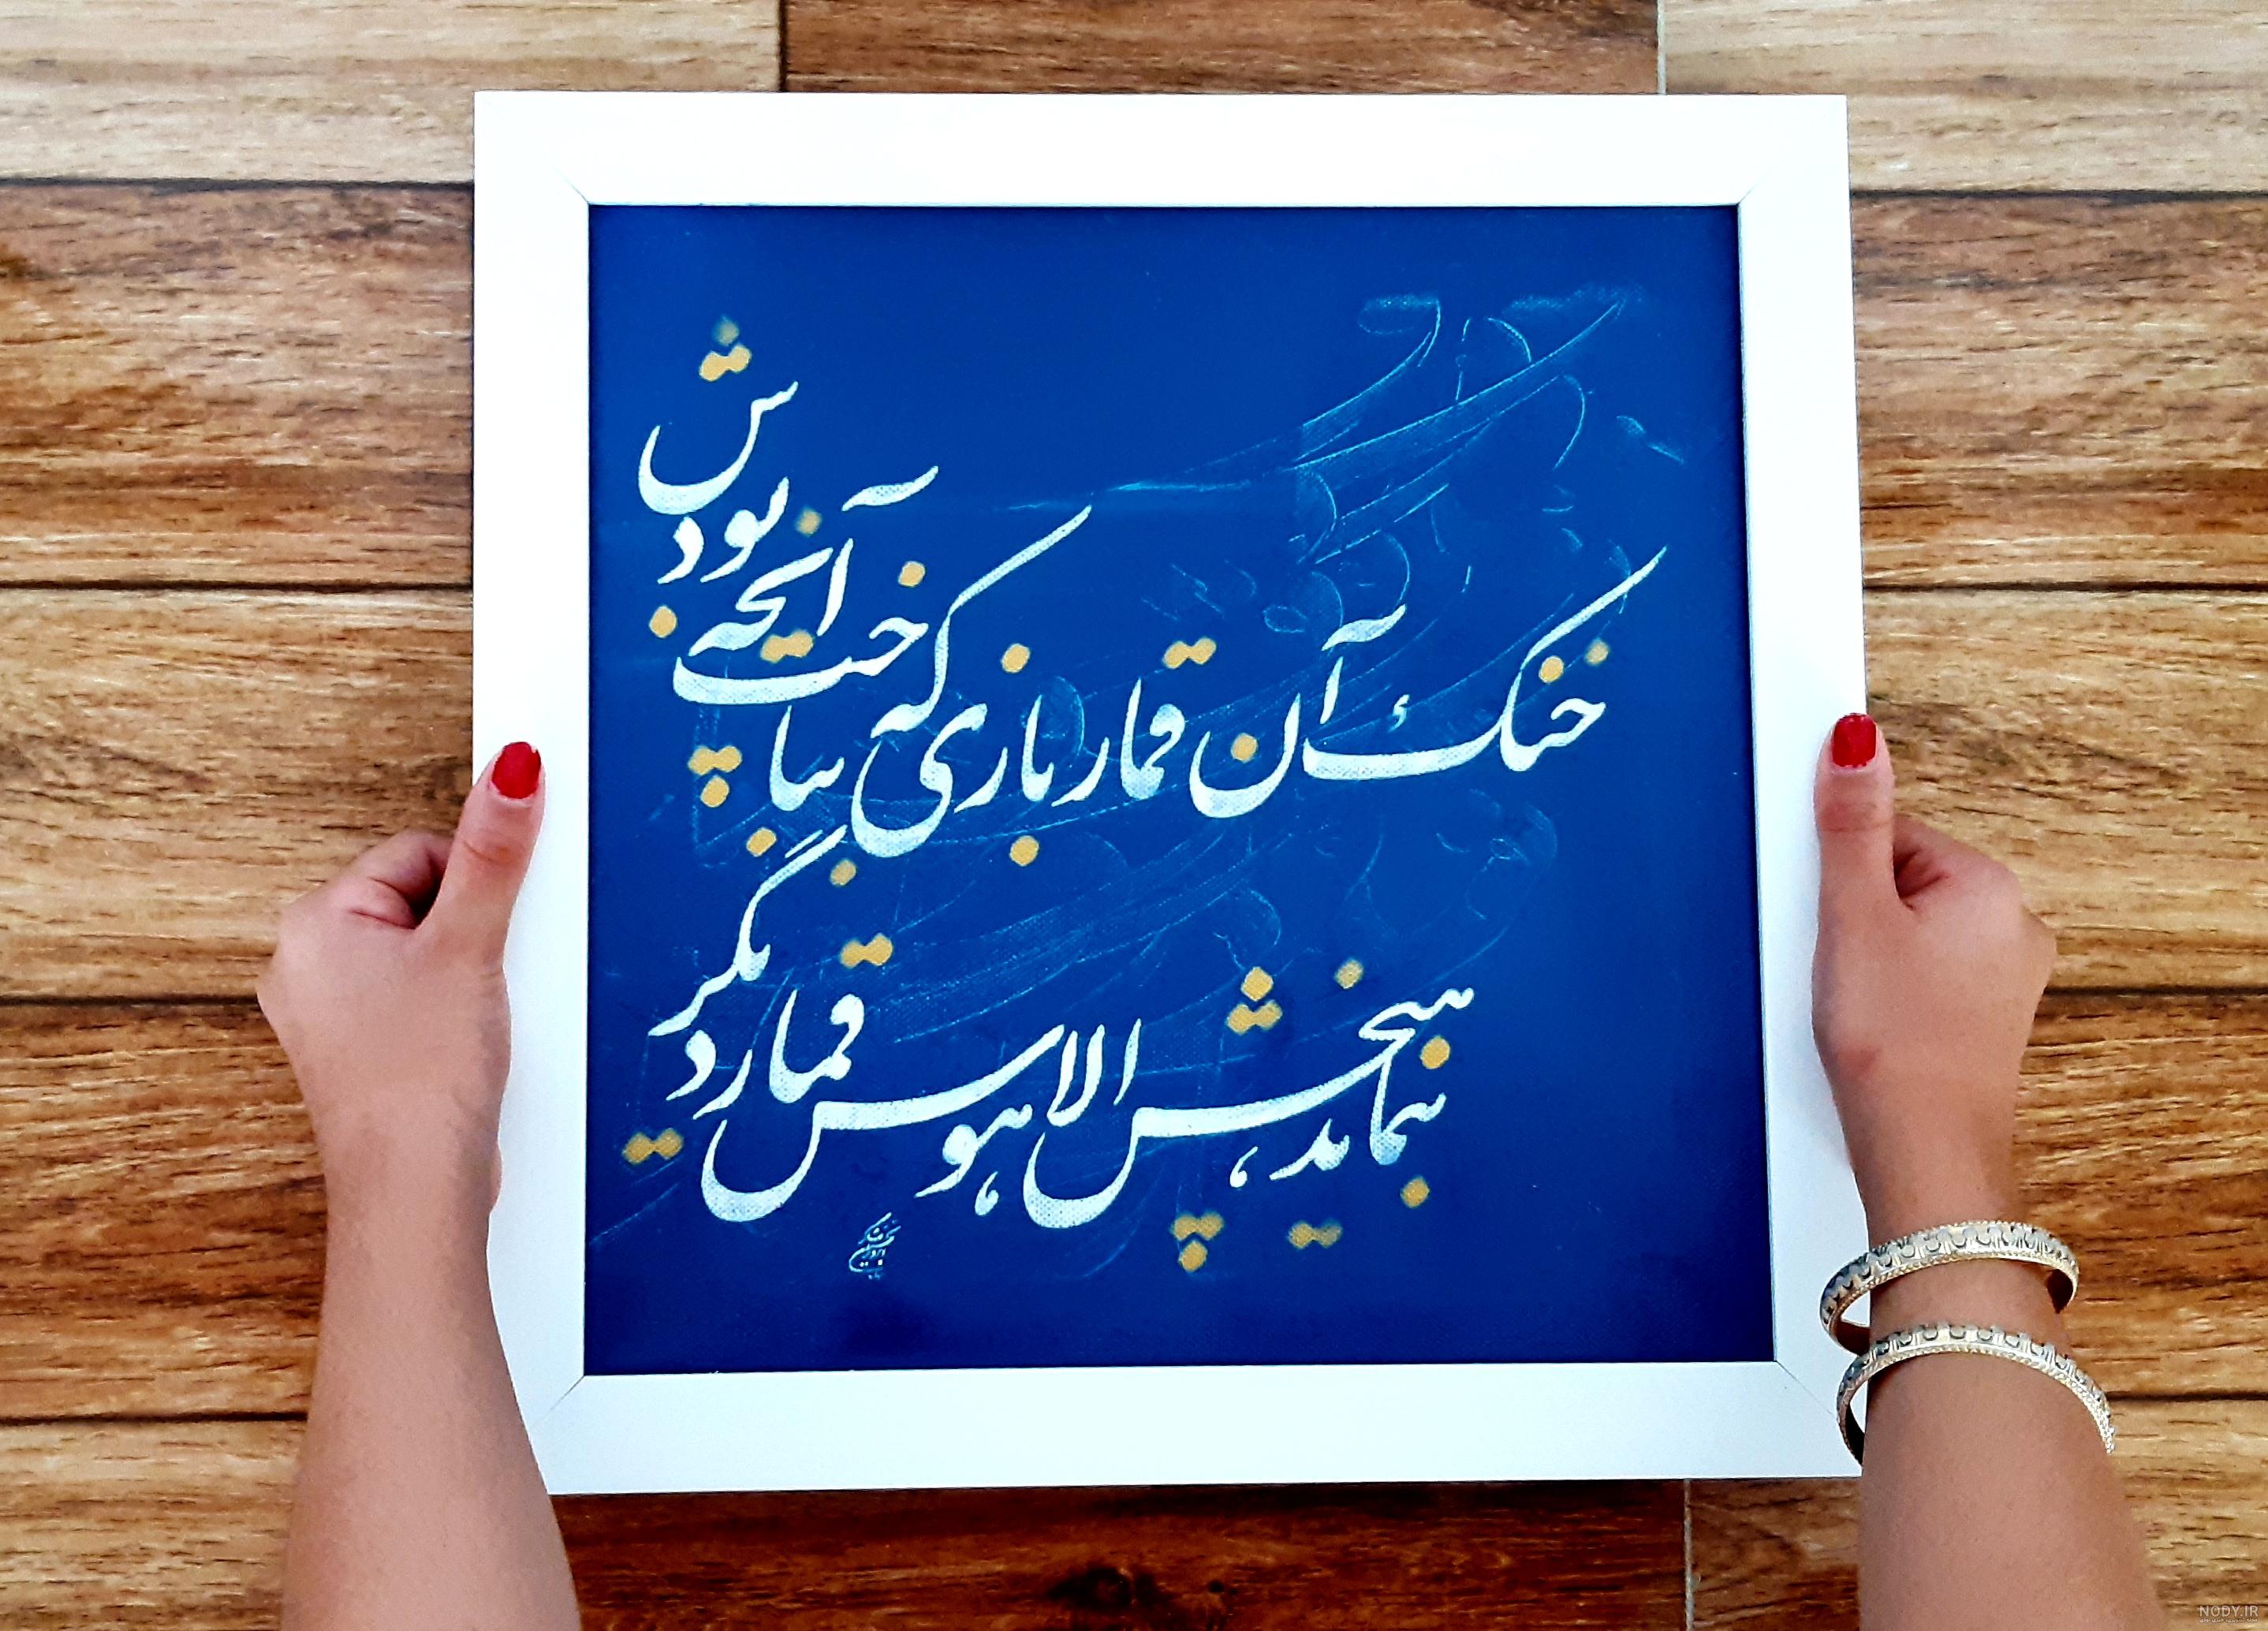 خنک آن قماربازی که بباخت آنچه بودش
بنماند هیچش الا هوس قمار دیگر
NODY.IR